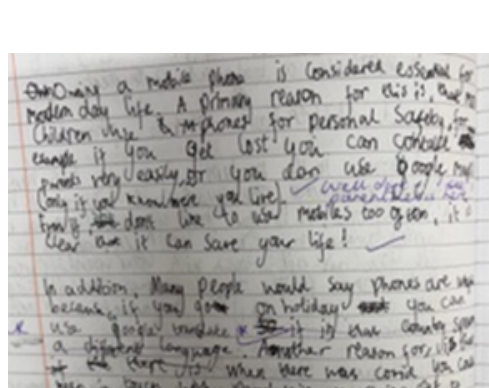 Owning a mobile phone is considered essential for
modern day life. A primary reason for this is, that
Children use phones for personal Safety, for
example if you get lost you can contact
parents very easily, or you can use google map
(only if you know where you live).
dont like to use mobiles too often, it
clear it can save your life!
In addition, Many people would say phones are
because, if you go on holiday you can
use google translate if in that country
a different language. Another reason for
is when there was covid you can